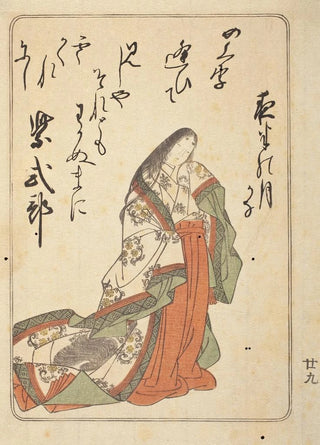 めくり
逢ひて
見しや
それとも
わかぬまに
雲かくれ
にし
夜半の月
かな
紫式部
廿九